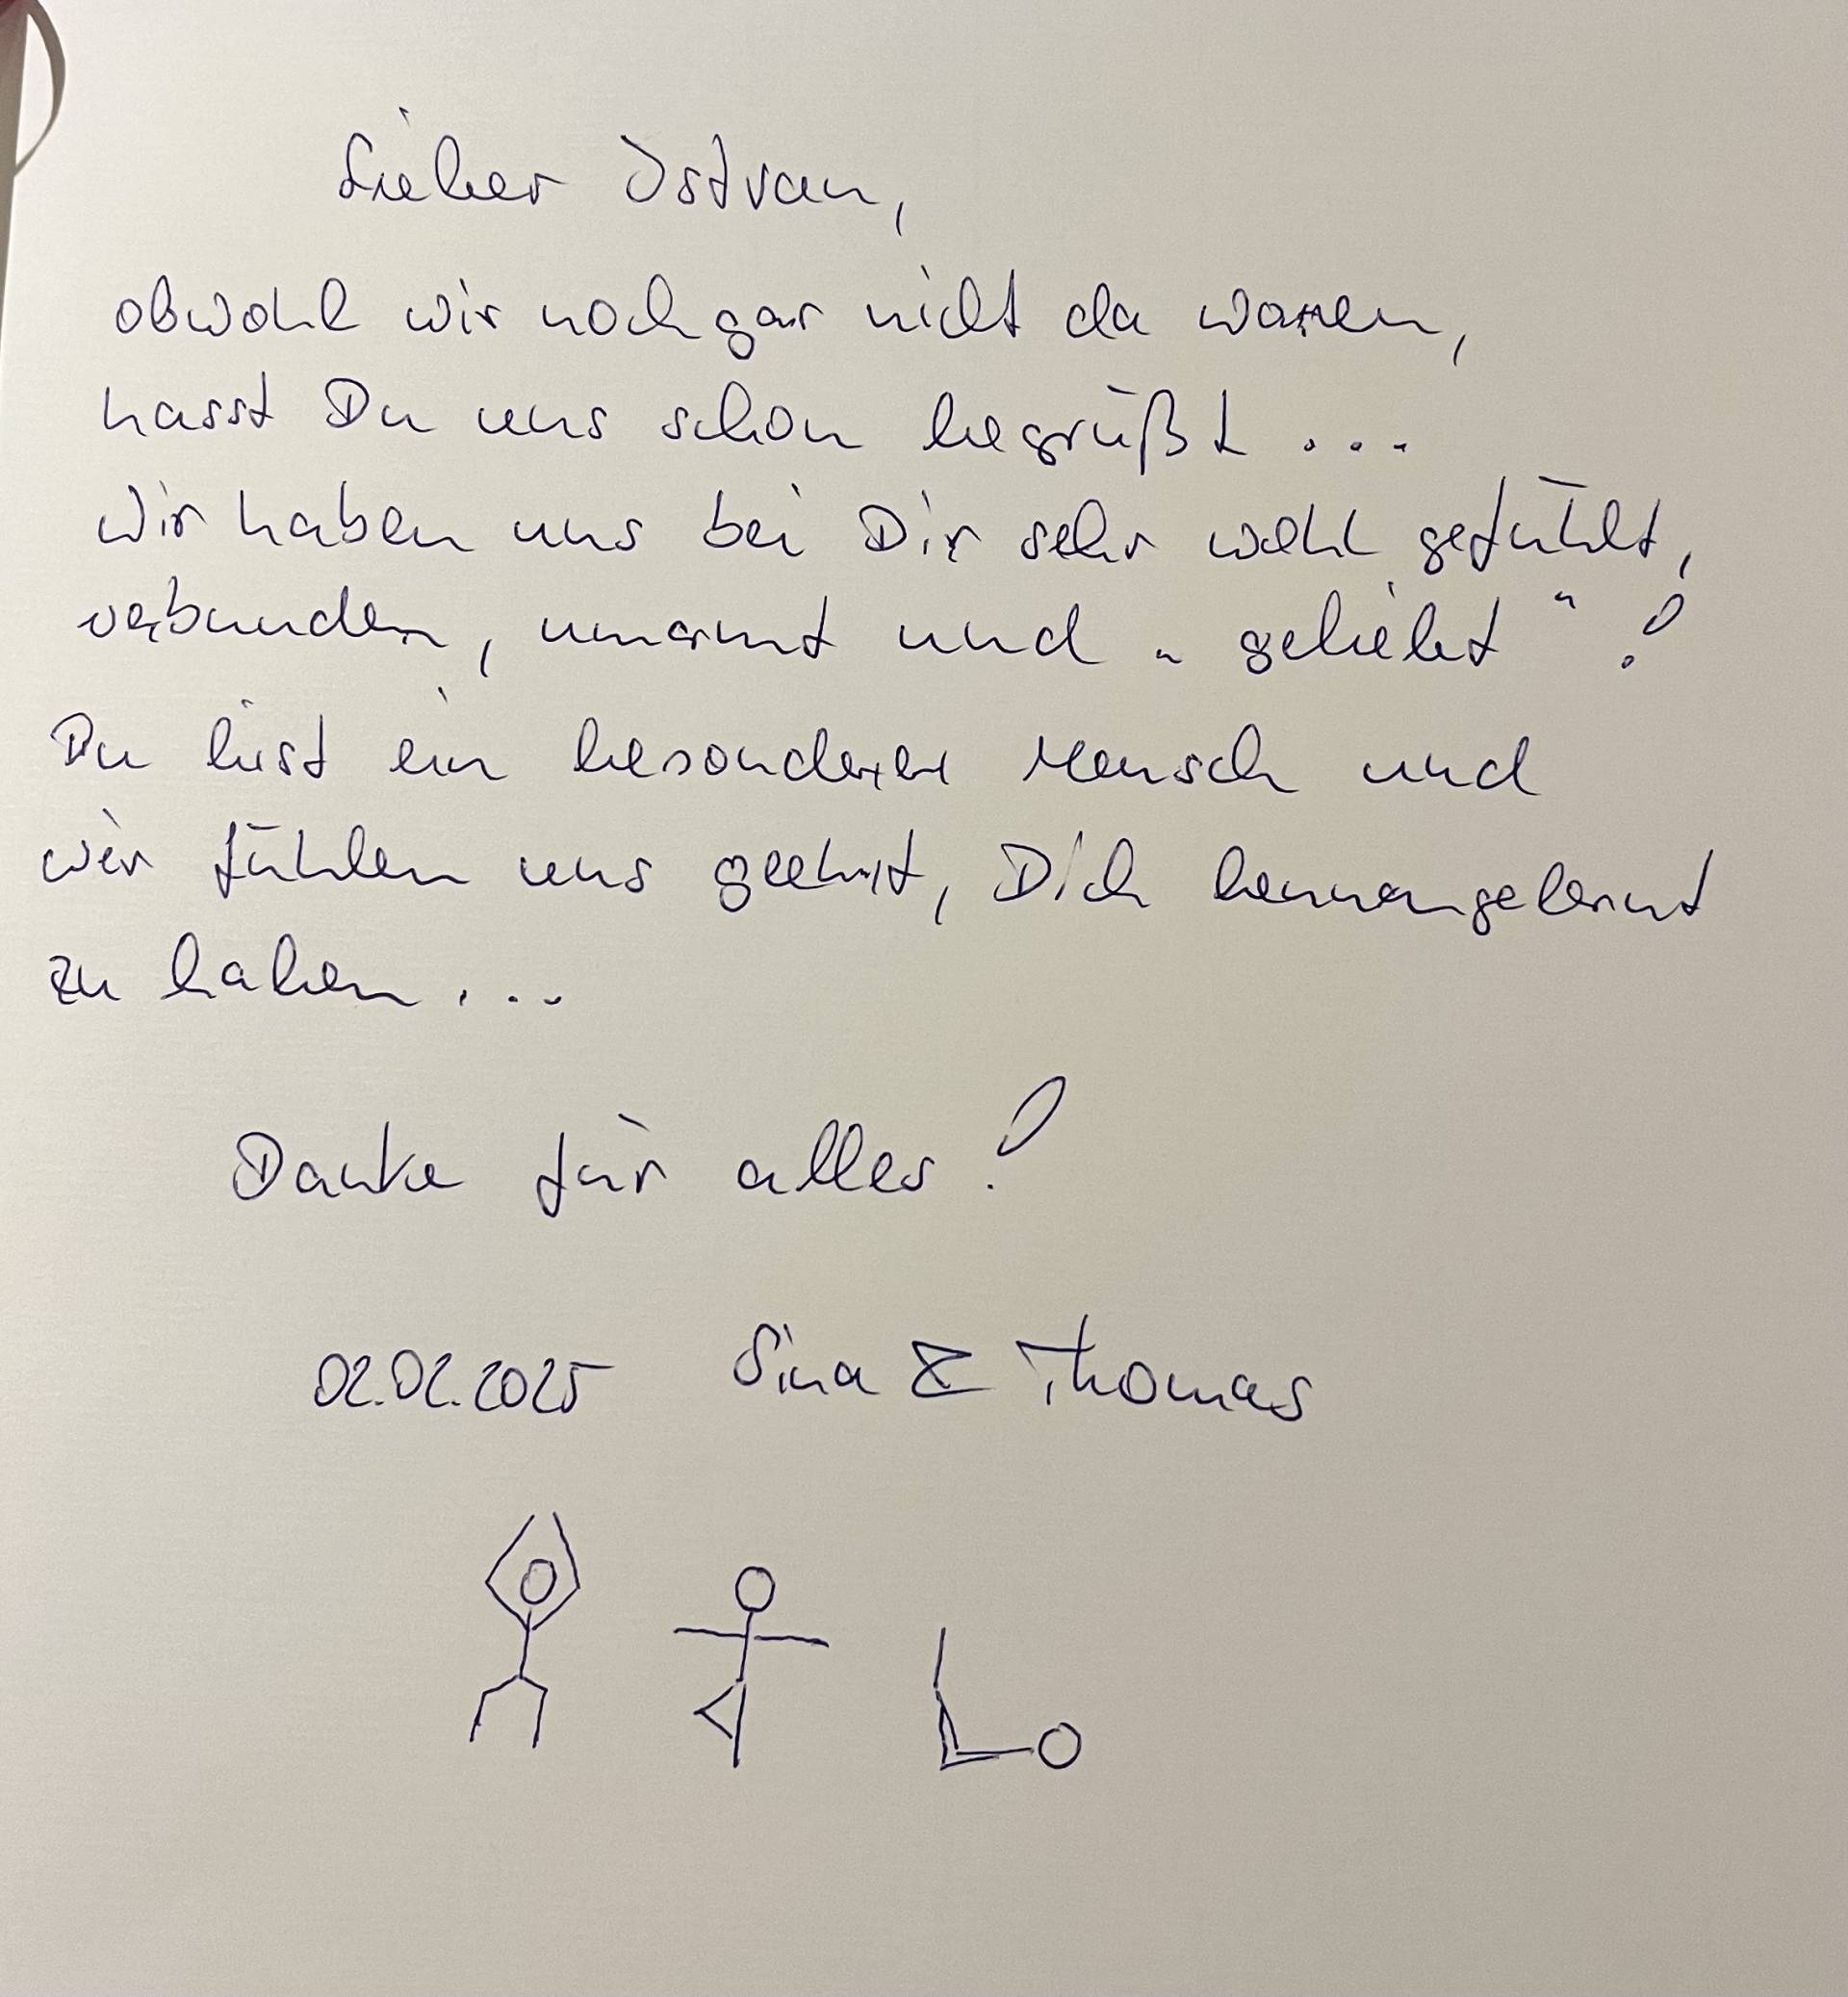 Lieber Istvan,
obwohl wir noch gar nicht da waren,
hasst Du uns schon begrüßt ...
Wir haben uns bei Dir sehr wohl gefühlt,
verbunden, umarmt und „geliebt“!
Du bist ein besonderer Mensch und
wir fühlen uns geehrt, Dich kennengelernt
zu haben ...
Danke für alles!
02.02.2025 Sina & Thomas